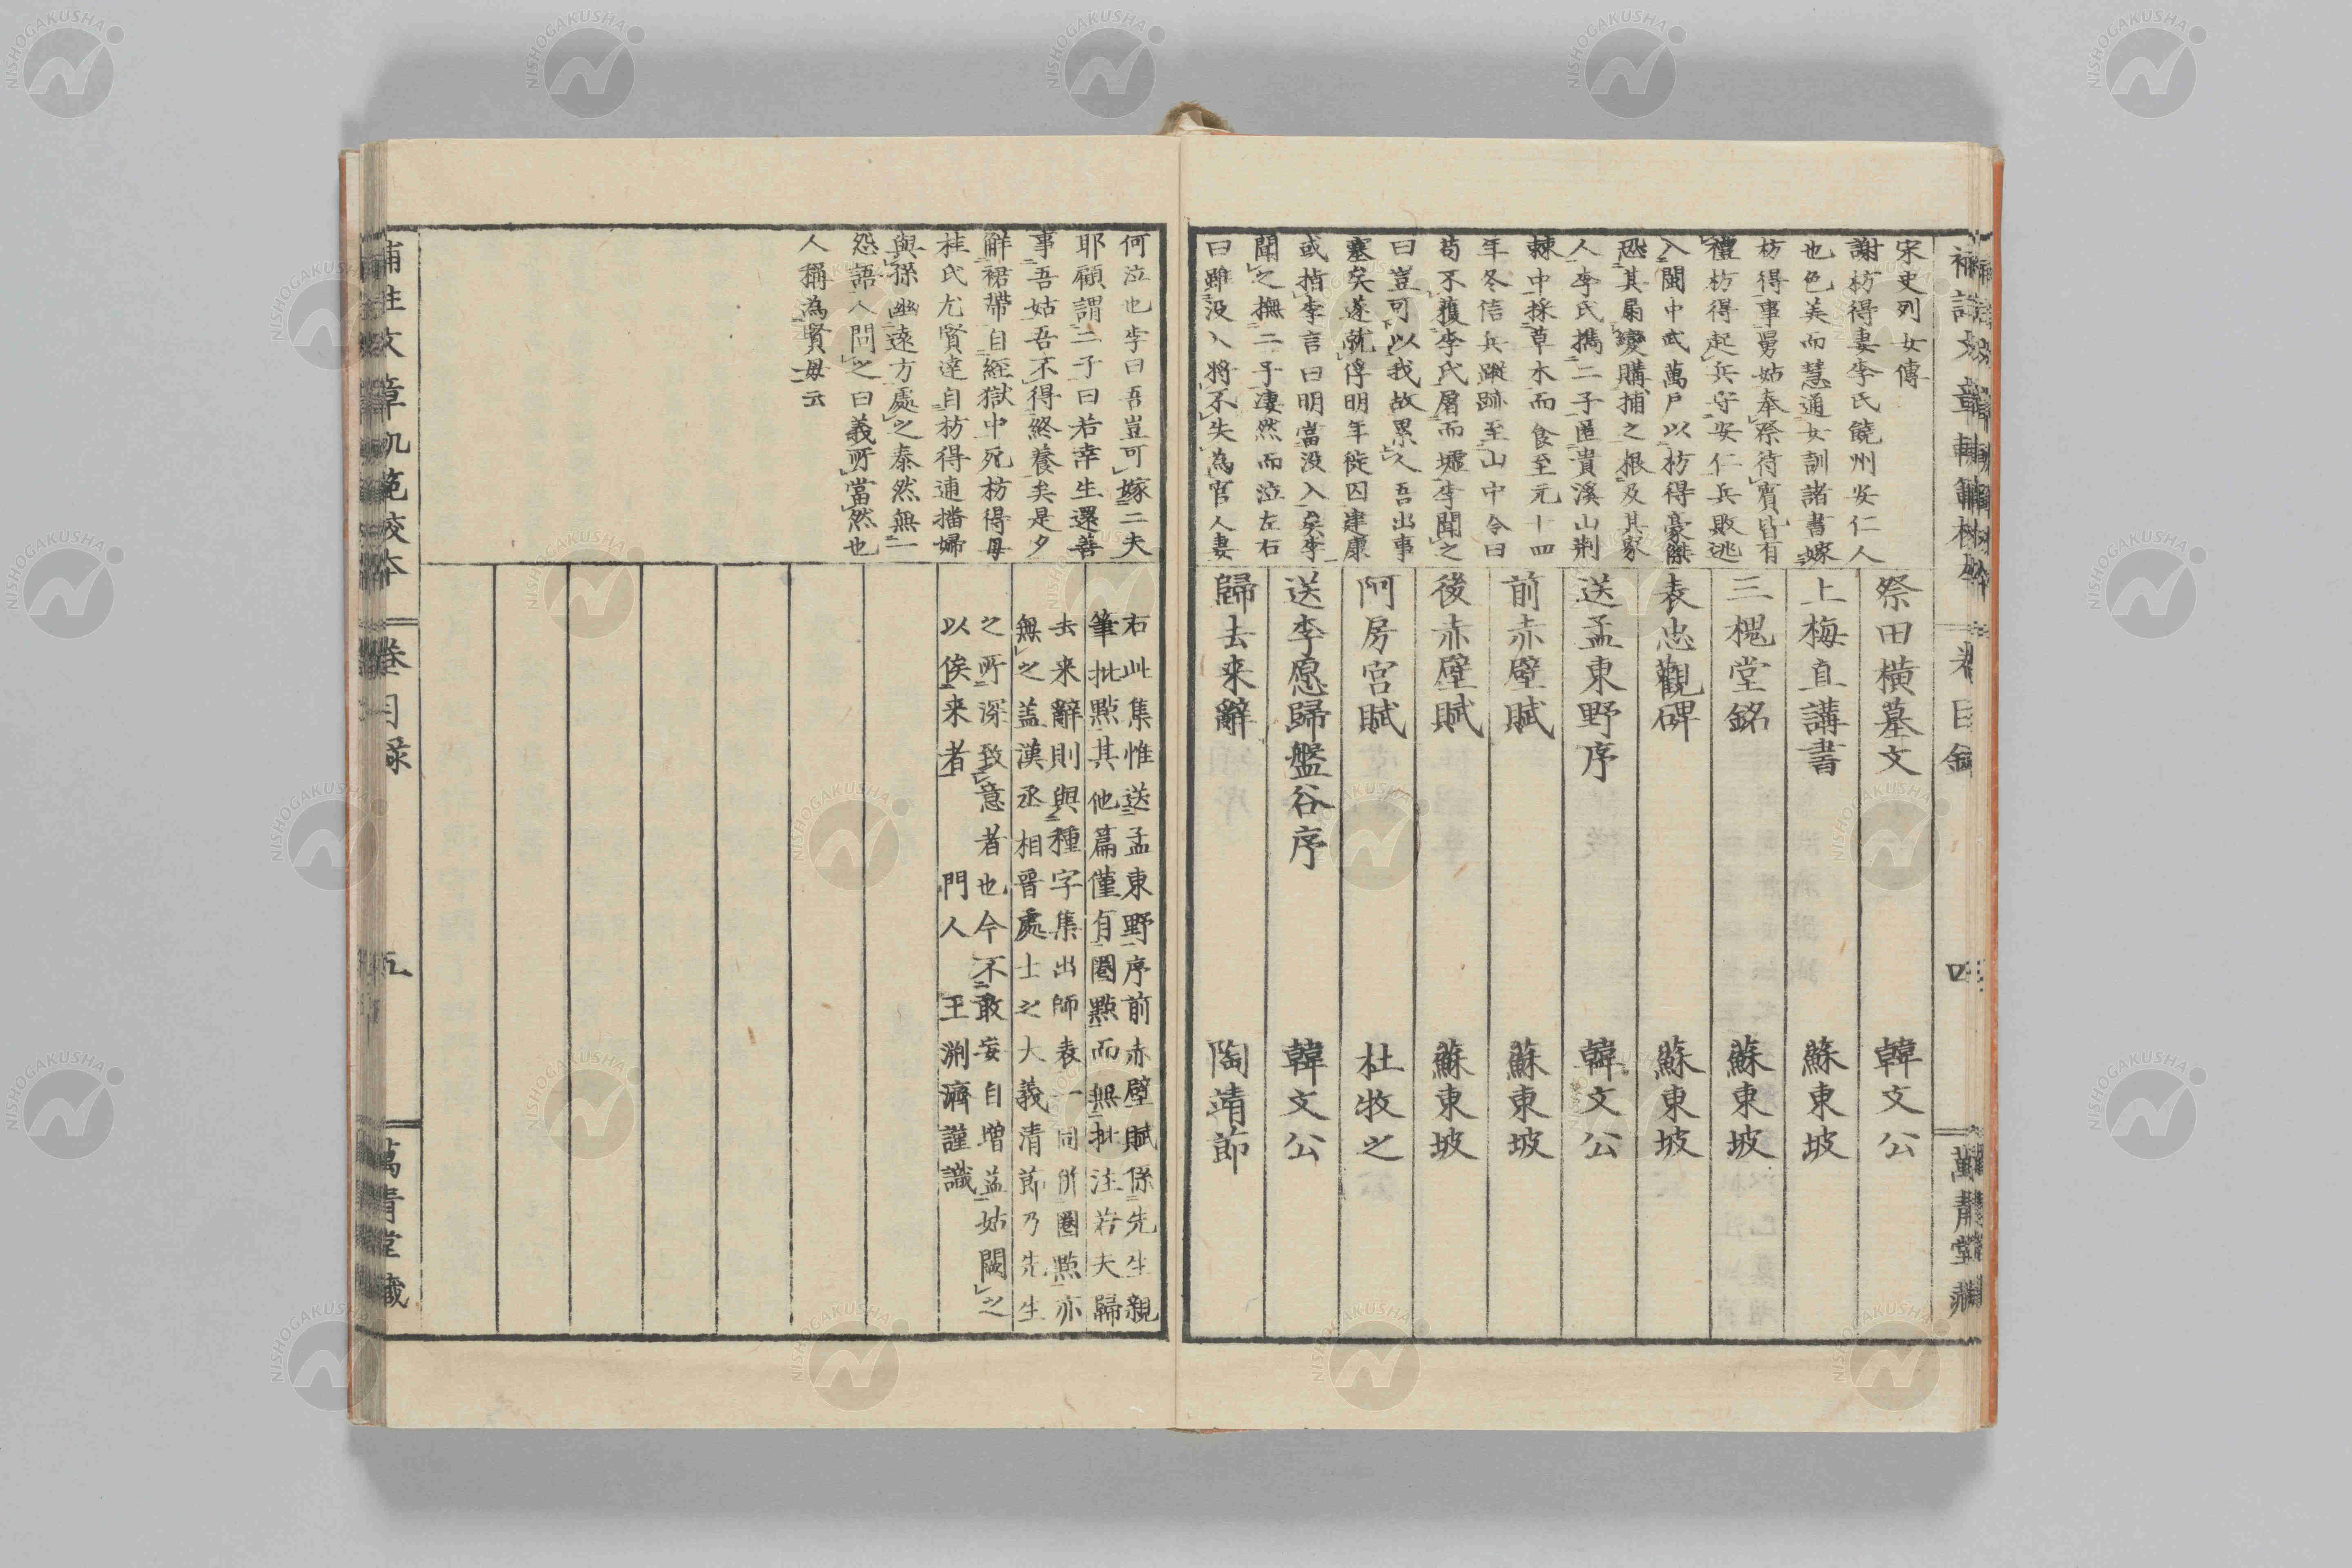 宋史列女傳
謝枋得妻李氏饒州安仁人
也色美而慧通女訓諸書嫁
枋得事舅姑奉祭待賓皆有
禮枋得起兵守安仁兵敗逃
入閩中武萬戸以枋得豪傑
恐其扇變購捕之根及其家
人李氏攜二子匿貴溪山荆
棘中採草木而食至元十四
年冬信兵蹤跡至山中令曰
苟不獲李氏屠而墟李聞之
曰豈可以我故累人吾出事
塞矣遂就俘明年徙囚建康
或指李言曰明當没入矣李
聞之撫二子凄然而泣左右
曰雖没入將不失為官人妻
祭田横墓文 韓文公
上梅直講書 蘇東坡
三槐堂銘 蘇東坡
表忠觀碑 蘇東坡
送孟東野序 韓文公
前赤壁賦 蘇東坡
後赤壁賦 蘇東坡
阿房宮賦 杜牧之
送李愿歸盤谷序 韓文公
歸去来辭 陶靖節
何泣也李曰吾豈可嫁二夫
耶顧謂二子曰若幸生還善
事吾姑吾不得終養矣是夕
解裙帶自經獄中死枋得母
桂氏尤賢達自枋得逋播婦
與孫幽遠方處之泰然無一
怨語人問之曰義所當然也
人稱為賢母云
右此集惟送孟東野序前赤壁賦係先生親
筆批點其他篇僅有圈點而無批注若夫歸
去来辭則與種字集出師表一同併圈點亦
無之蓋漢丞相晋處士之大義清節乃先生
之所深致意者也今不敢妄自增益姑闕之
以俟来者 門人 王淵濟謹識
補註文章軌範校本 卷目録 五 萬青堂藏